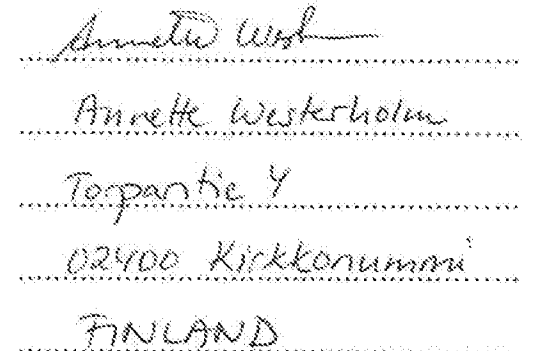 Annette West
Annette Westerholm
Torpantie 4
02400 Kirkkonummi
FINLAND